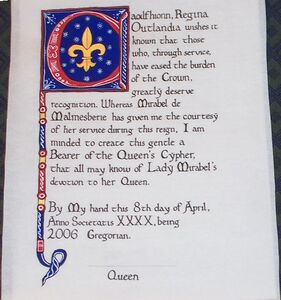 Caoilfhionn, Regina
Outlandia wishes it
known that those
who, through service,
have eased the burden
of the Crown,
greatly deserve
recognition. Whereas Mirabel de
Malmesberie has given me the courtesy
of her service during this reign, I am
minded to create this gentle a
Bearer of the Queen's Cypher,
that all may know of Lady Mirabel's
devotion to her Queen.
By My hand this 8th day of April,
Anno Societatis XXXX, being
2006 Gregorian.
Queen